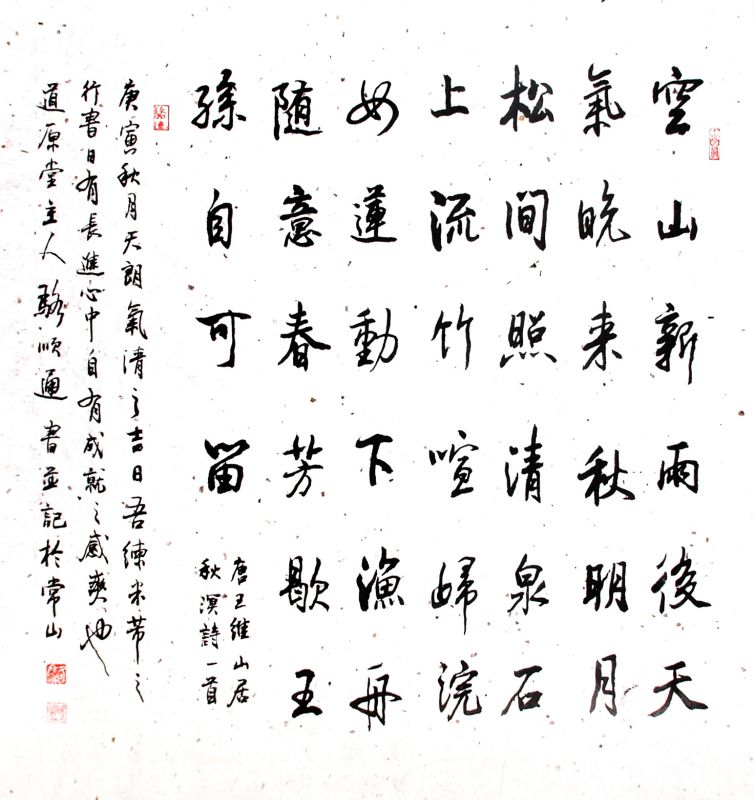 空山新雨後天
氣晚来秋明月
松間照清泉石
上流竹喧歸浣
女蓮動下漁舟
随意春芳歇王
孫自可留
唐王維山居
秋溟詩一首
庚寅秋月天朗氣清之吉日吾練米芾之
行書日有長進心中自有成就之感爽也
道原堂主人駱順通書並記於常山